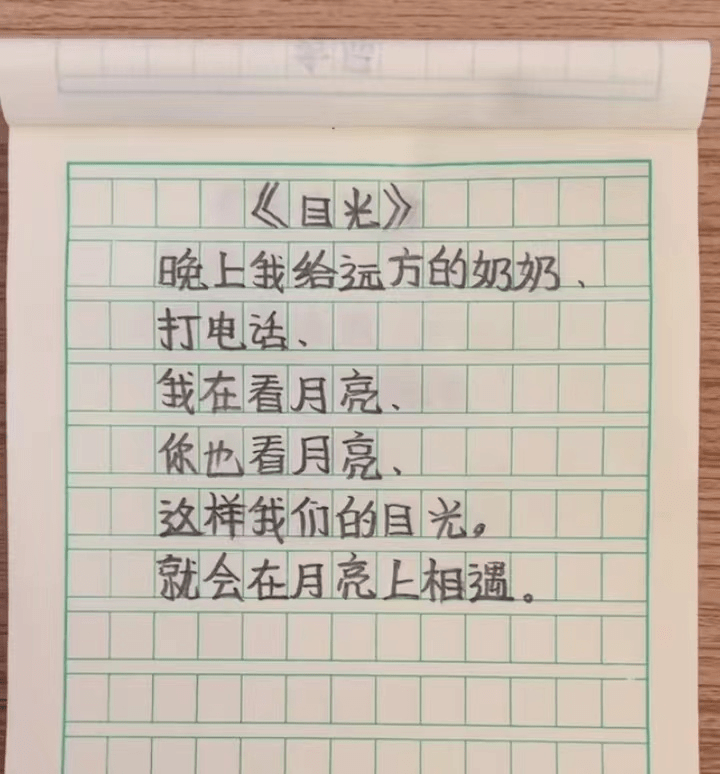 《目光》
晚上我给远方的奶奶、
打电话、
我在看月亮、
你也看月亮、
这样我们的目光。
就会在月亮上相遇。